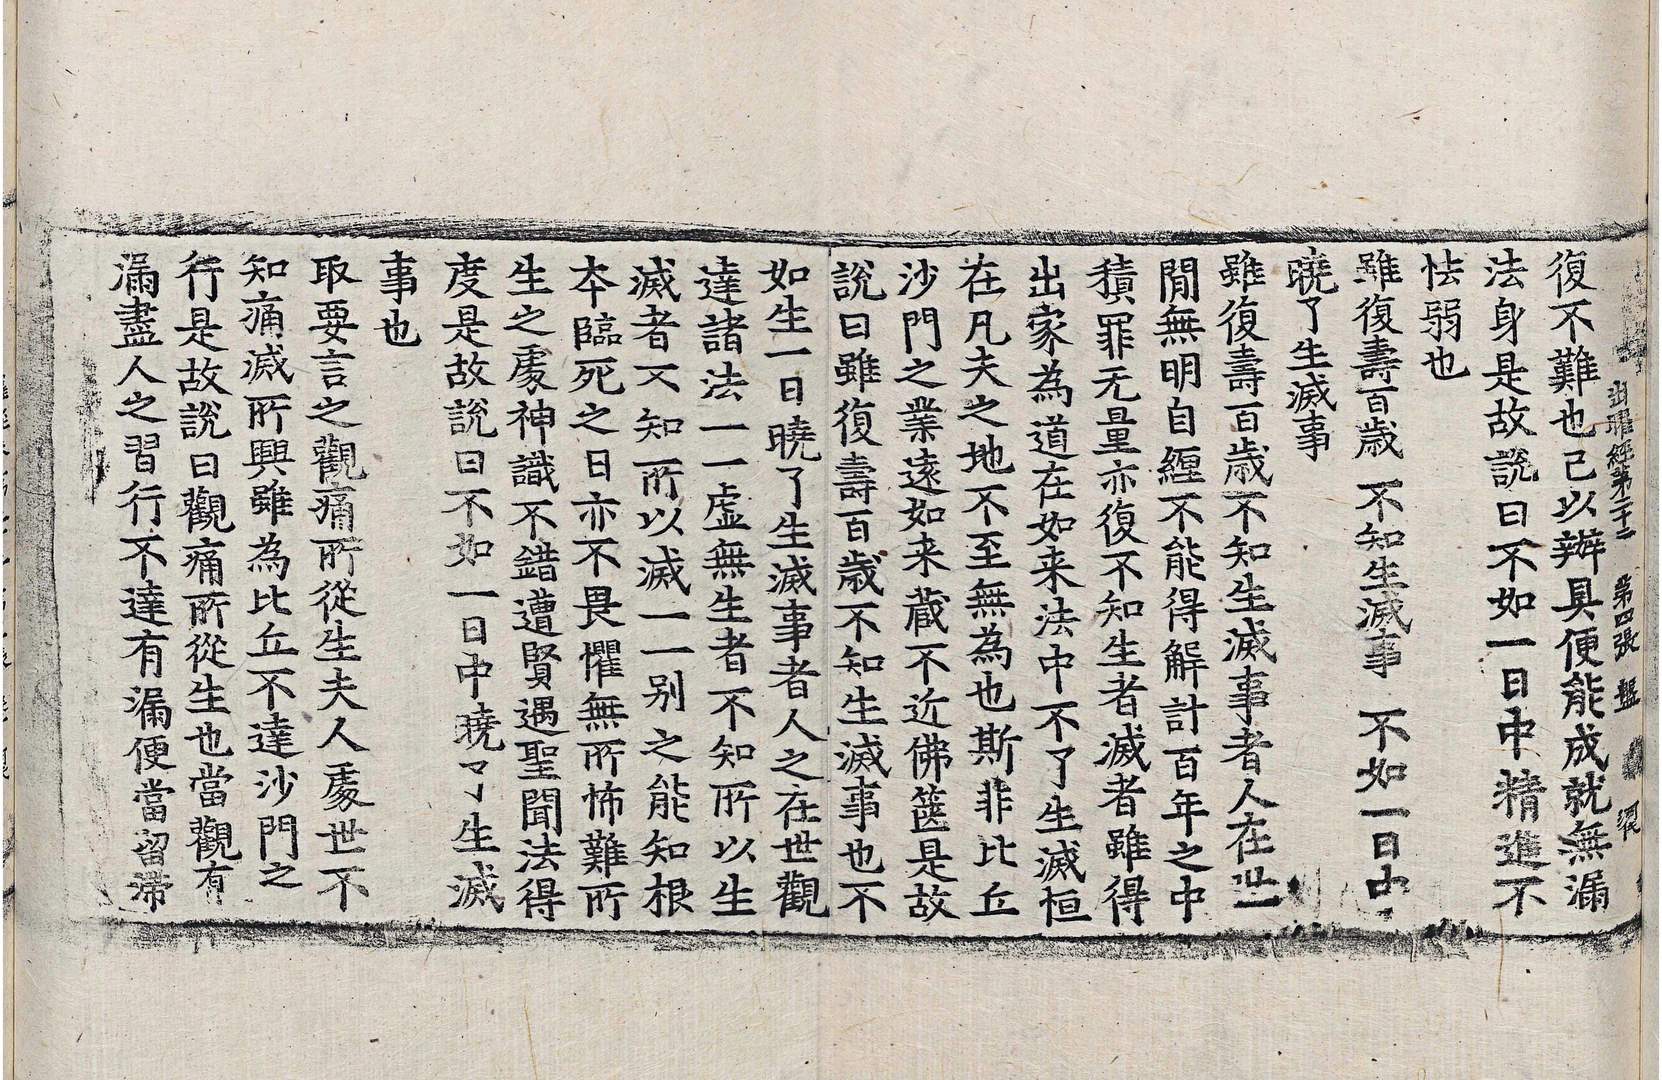 出曜經第二十二 第四張 盤
復不難也已以辦具便能成就無漏
法身是故說曰不如一日中精進不
怯弱也
雖復壽百歲 不知生滅事 不如一日中
曉了生滅事
雖復壽百歲不知生滅事者人在世
間無明自纏不能得解計百年之中
積罪无量亦復不知生者滅者雖得
出家為道在如来法中不了生滅桓
在凡夫之地不至無為也斯非比丘
沙門之業遠如来藏不近佛篋是故
說曰雖復壽百歲不知生滅事也不
如生一日曉了生滅事者人之在世觀
達諸法一一虛無生者不知所以生
滅者又知所以滅一一別之能知根
本臨死之日亦不畏懼無所怖難所
生之處神識不錯遭賢遇聖聞法得
度是故說曰不如一日中曉了生滅
事也
取要言之觀痛所從生夫人處世不
知痛滅所興雖為比丘不達沙門之
行是故說曰觀痛所從生也當觀有
漏盡人之習行不達有漏便當留滯